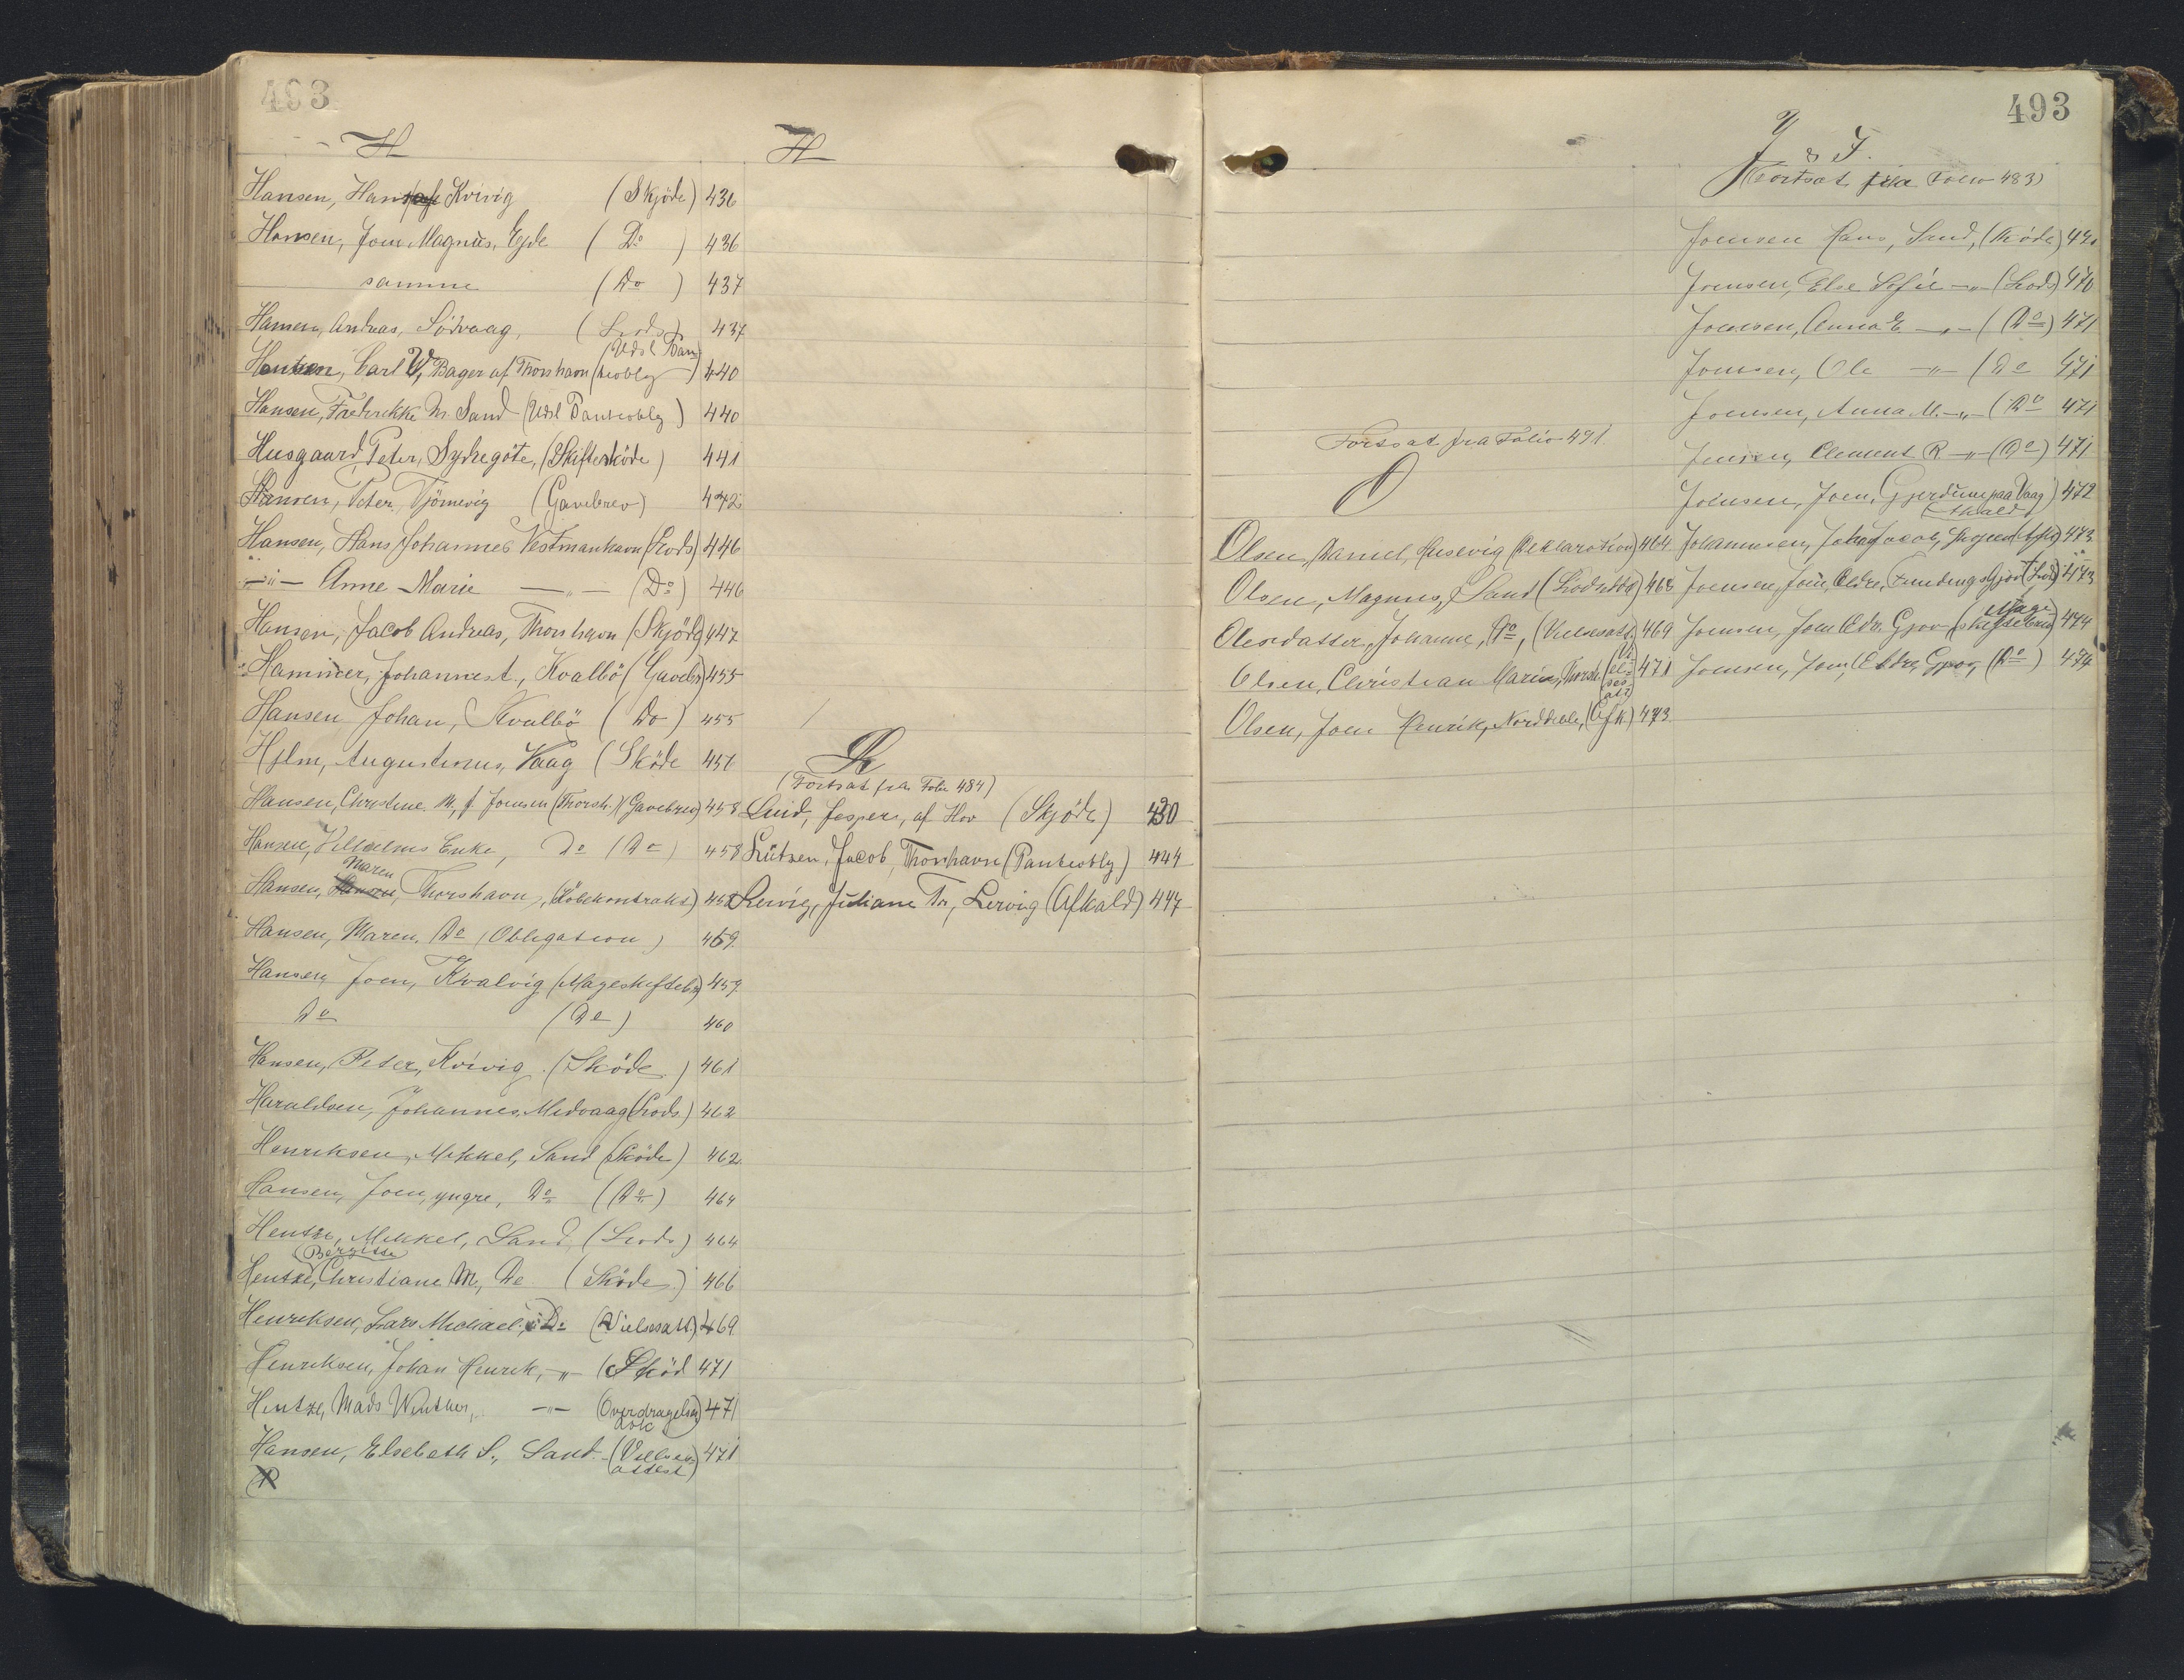 493
H
Hansen, Hans Kvivig (Skjöde) 436
Hansen, Joen Magnus, Ejde (Do) 436
samme (Do) 437
Hansen, Andreas, Sörvaag, (Skods) 437
(Udsl Pan
Hentzen, Carl W, Bager af Thorshavn (teobly) 440
Hansen, Frederikke M. Sand (Udsl Panteobly) 440
Husgaard Peter, Sydregöte, (Skifteskóde) 441
Hansen, Peter, Tjörnevig (Gavebrev) 442
Hansen, Hans Johannes Vestmanhavn (Skods) 446
-"- Anne Marie -"- (Do) 446
Hansen, Jacob Andreas, Thorshavn (Skjöde) 447
Hammer, Johannes t., Kvalbö (Gavebr) 455
Hansen Johan, Kvalbö (Do) 455
Hjlm, Augustinus, Vaag (Sköde 456
Hansen, Christine M. f. Joensen (Thorsh.) (Gavebrev) 458
Hansen, Vilhelms Enke, Do (Do) 458
Maren
Hansen, Thorshavn, (Köbekontrakt) 458
Hansen, Maren, Do (Obligation) 459
Hansen, Joen, Kvalvig (Mageskiftebr) 459
Do (Do) 460
Hansen, Peter, Kvivig (Sköde) 461
Haraldsen, Johannes, Midvaag (Skods.) 462
Henriksen, Mikkel, Sand (Sköde) 462
Hansen, Joen, yngre, Do (Do) 464
Hentze, Mikkel, Sand (Skods) 464
(Bergitte
Hentze, Christiane M., Do (Sköde) 466
Henriksen, Lars Michael, Do (Vielsesatt.) 469
Henriksen, Johan Henrik, -"- (Sköd 471
Hentze, Mads Winther, -"- (Overdragelses 471
dok)
Hansen, Elsebeth S., Sand. (Vielses 471
attest)
H
L
(Fortsat fra Folio 484)
Lund, Jespers, af Hov (Skjöde) 430
Lützen, Jacob, Thorshavn (Panteobly) 444
Lervig, Juliane Fr, Lervig (Afkald) 447
Fortsat fra Folio 491
O
Olsen, Daniel, Husevig (Deklaration) 464
Olsen, Magnus, Sand (Skodsdok) 468
Olesdatter, Johanne, Do, (Vielsesatt.) 469
Olsen, Christian Marius, Thorsh. (Vielsesatt) 471
Olsen, Joen Henrik, Norddeble, (Afk) 473
493
J & I.
(Fortsat fra Folio 483)
Joensen Hans, Sand, (Sköde) 470
Joensen, Else Sofie -"- (Skods) 470
Joensen, Anna E -"- (Do) 471
Joensen, Ole -"- (Do 471
Joensen, Anna M. -"- (Do 471
Jensen, Clement R. -"- (Do) 471
Joensen, Joen, Gjerdume paa Vaag) 472
(Afkald)
Johannesen, Johan Jacob, (Afk) 473
Joensen, Joen, Eldre, Funding Gjov (Skd) 473
Joensen, Joen Eldr. Gjov (Mageskiftebrev) 474
Joensen, Joen, Eldre, Gjov, (Do) 474